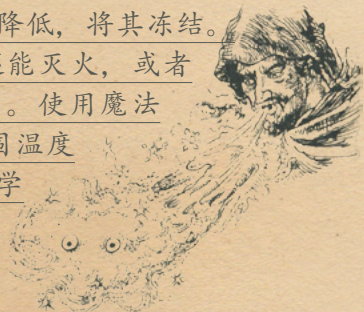 降低，将其冻结。
能灭火，或者
。使用魔法
围温度
学